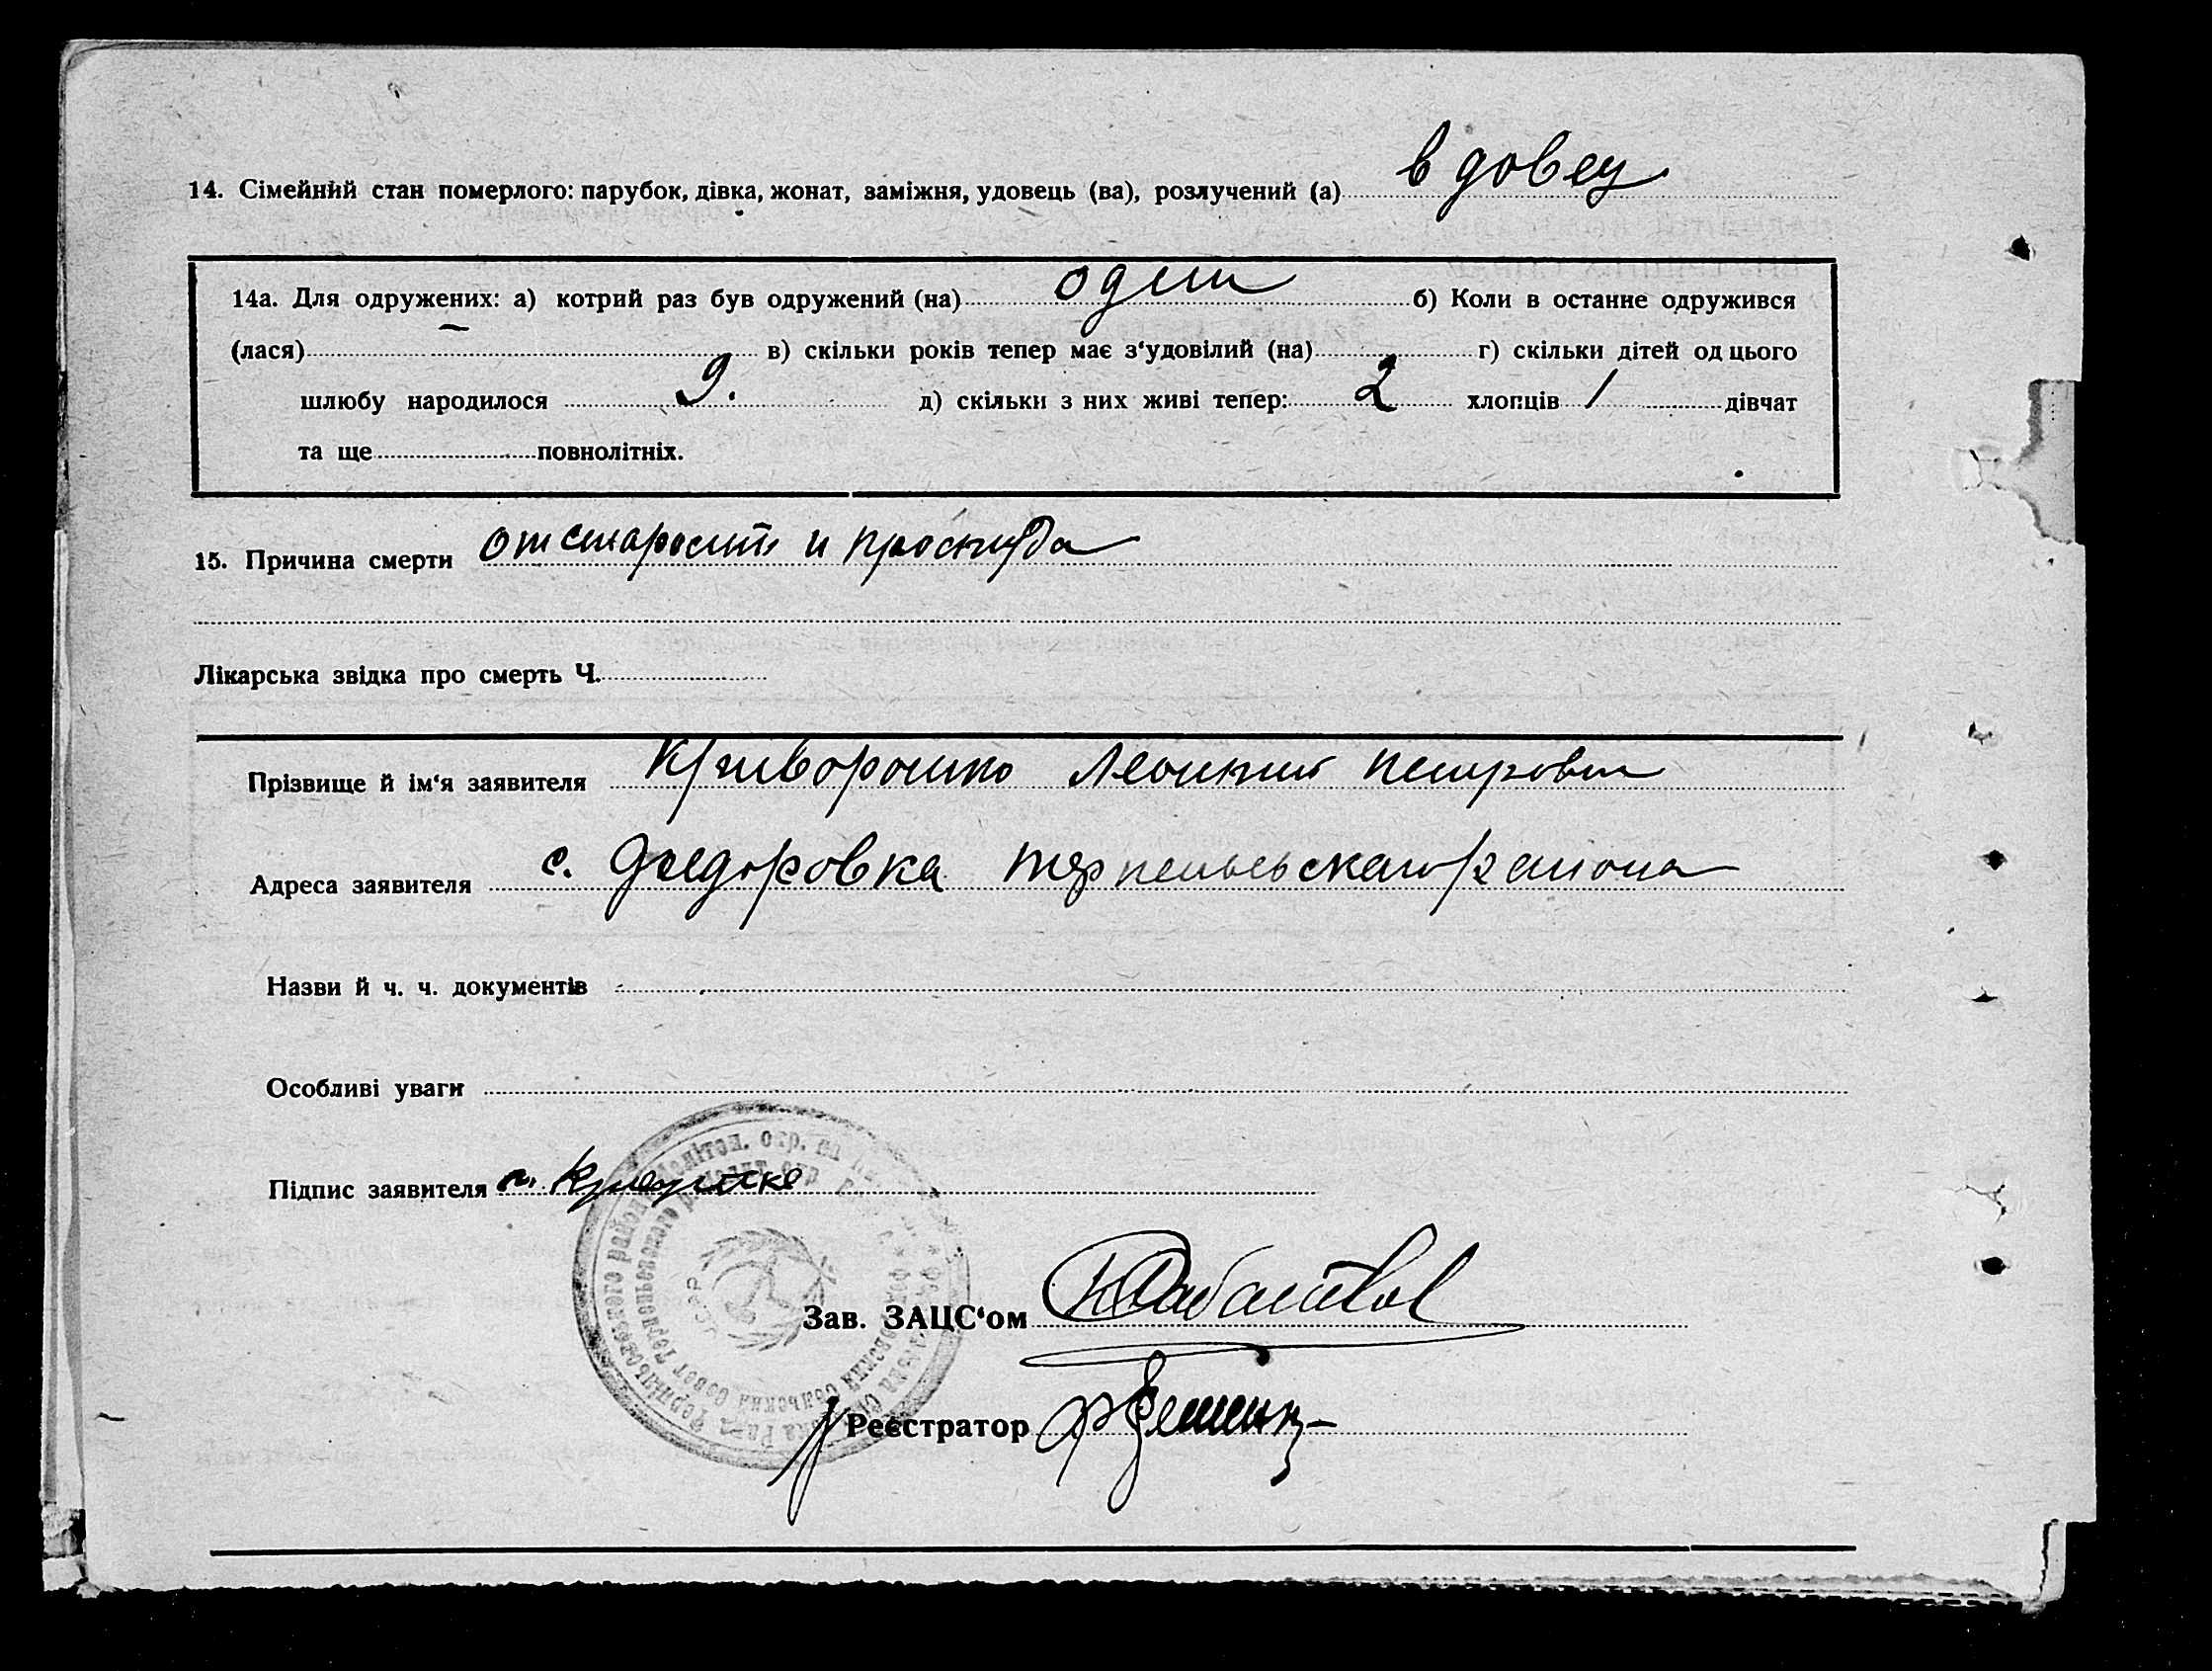 14. Сімейний стан померлого: парубок, дівка, жонат, заміжня, удовець (ва), розлучений (а) вдовец
14а. Для одружених: а) котрий раз був одружений (на) один б) Коли в останне одружився
(лася) в) скільки років тепер має з‘удовілий (на) г) скільки дітей од цього
шлюбу народилося 9. д) скільки з них живі тепер: 2 хлопців 1 дівчат
та ще повнолітніх.
15. Причина смерти от старости и простуда
Лікарська звідка про смерть Ч.
Прізвище й ім‘я заявителя Криворотко Петрович
Адреса заявителя с. Федоровка района
Назви й ч. ч. документів
Особливі уваги
Підпис заявителя
Зав. ЗАЦС‘ом
Реєстратор